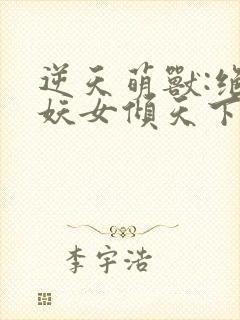 逆天萌獸:絕
妖女傾天下
李宇浩